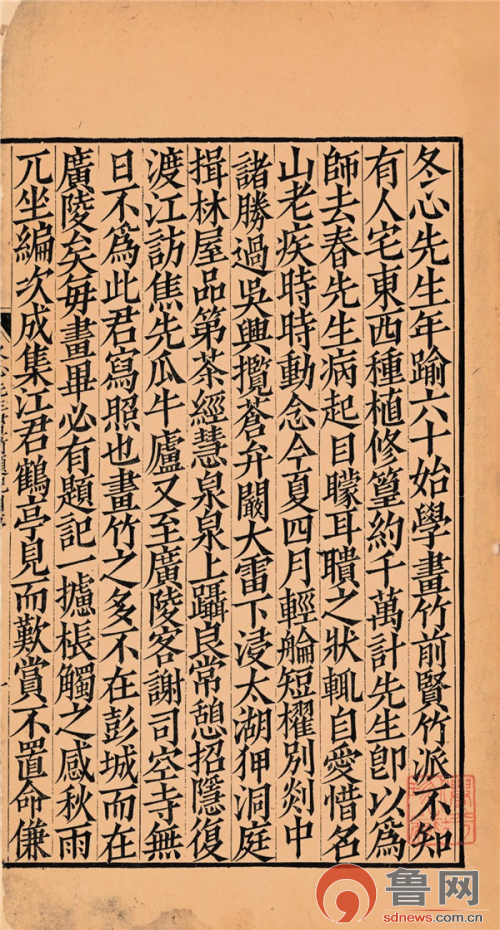 冬心先生年踰六十始學畫竹前賢竹派不知
有人宅東西種植修篁約千萬計先生卽以爲
師去春先生病起目矇耳聵之狀輒自愛惜名
山老疾時時動念今夏四月輕艑短櫂別剡中
諸勝過吳興攬蒼弁闞大雷下浸太湖狎洞庭
揖林屋品第茶經慧泉泉上躡良常憩招隱復
渡江訪焦先瓜牛廬又至廣陵客謝司空寺無
日不爲此君寫照也畫竹之多不在彭城而在
廣陵矣每畫畢必有題記一攄棖觸之感秋雨
兀坐編次成集江君鶴亭見而歎賞不置命傔
鲁网
sdnews.com.cn